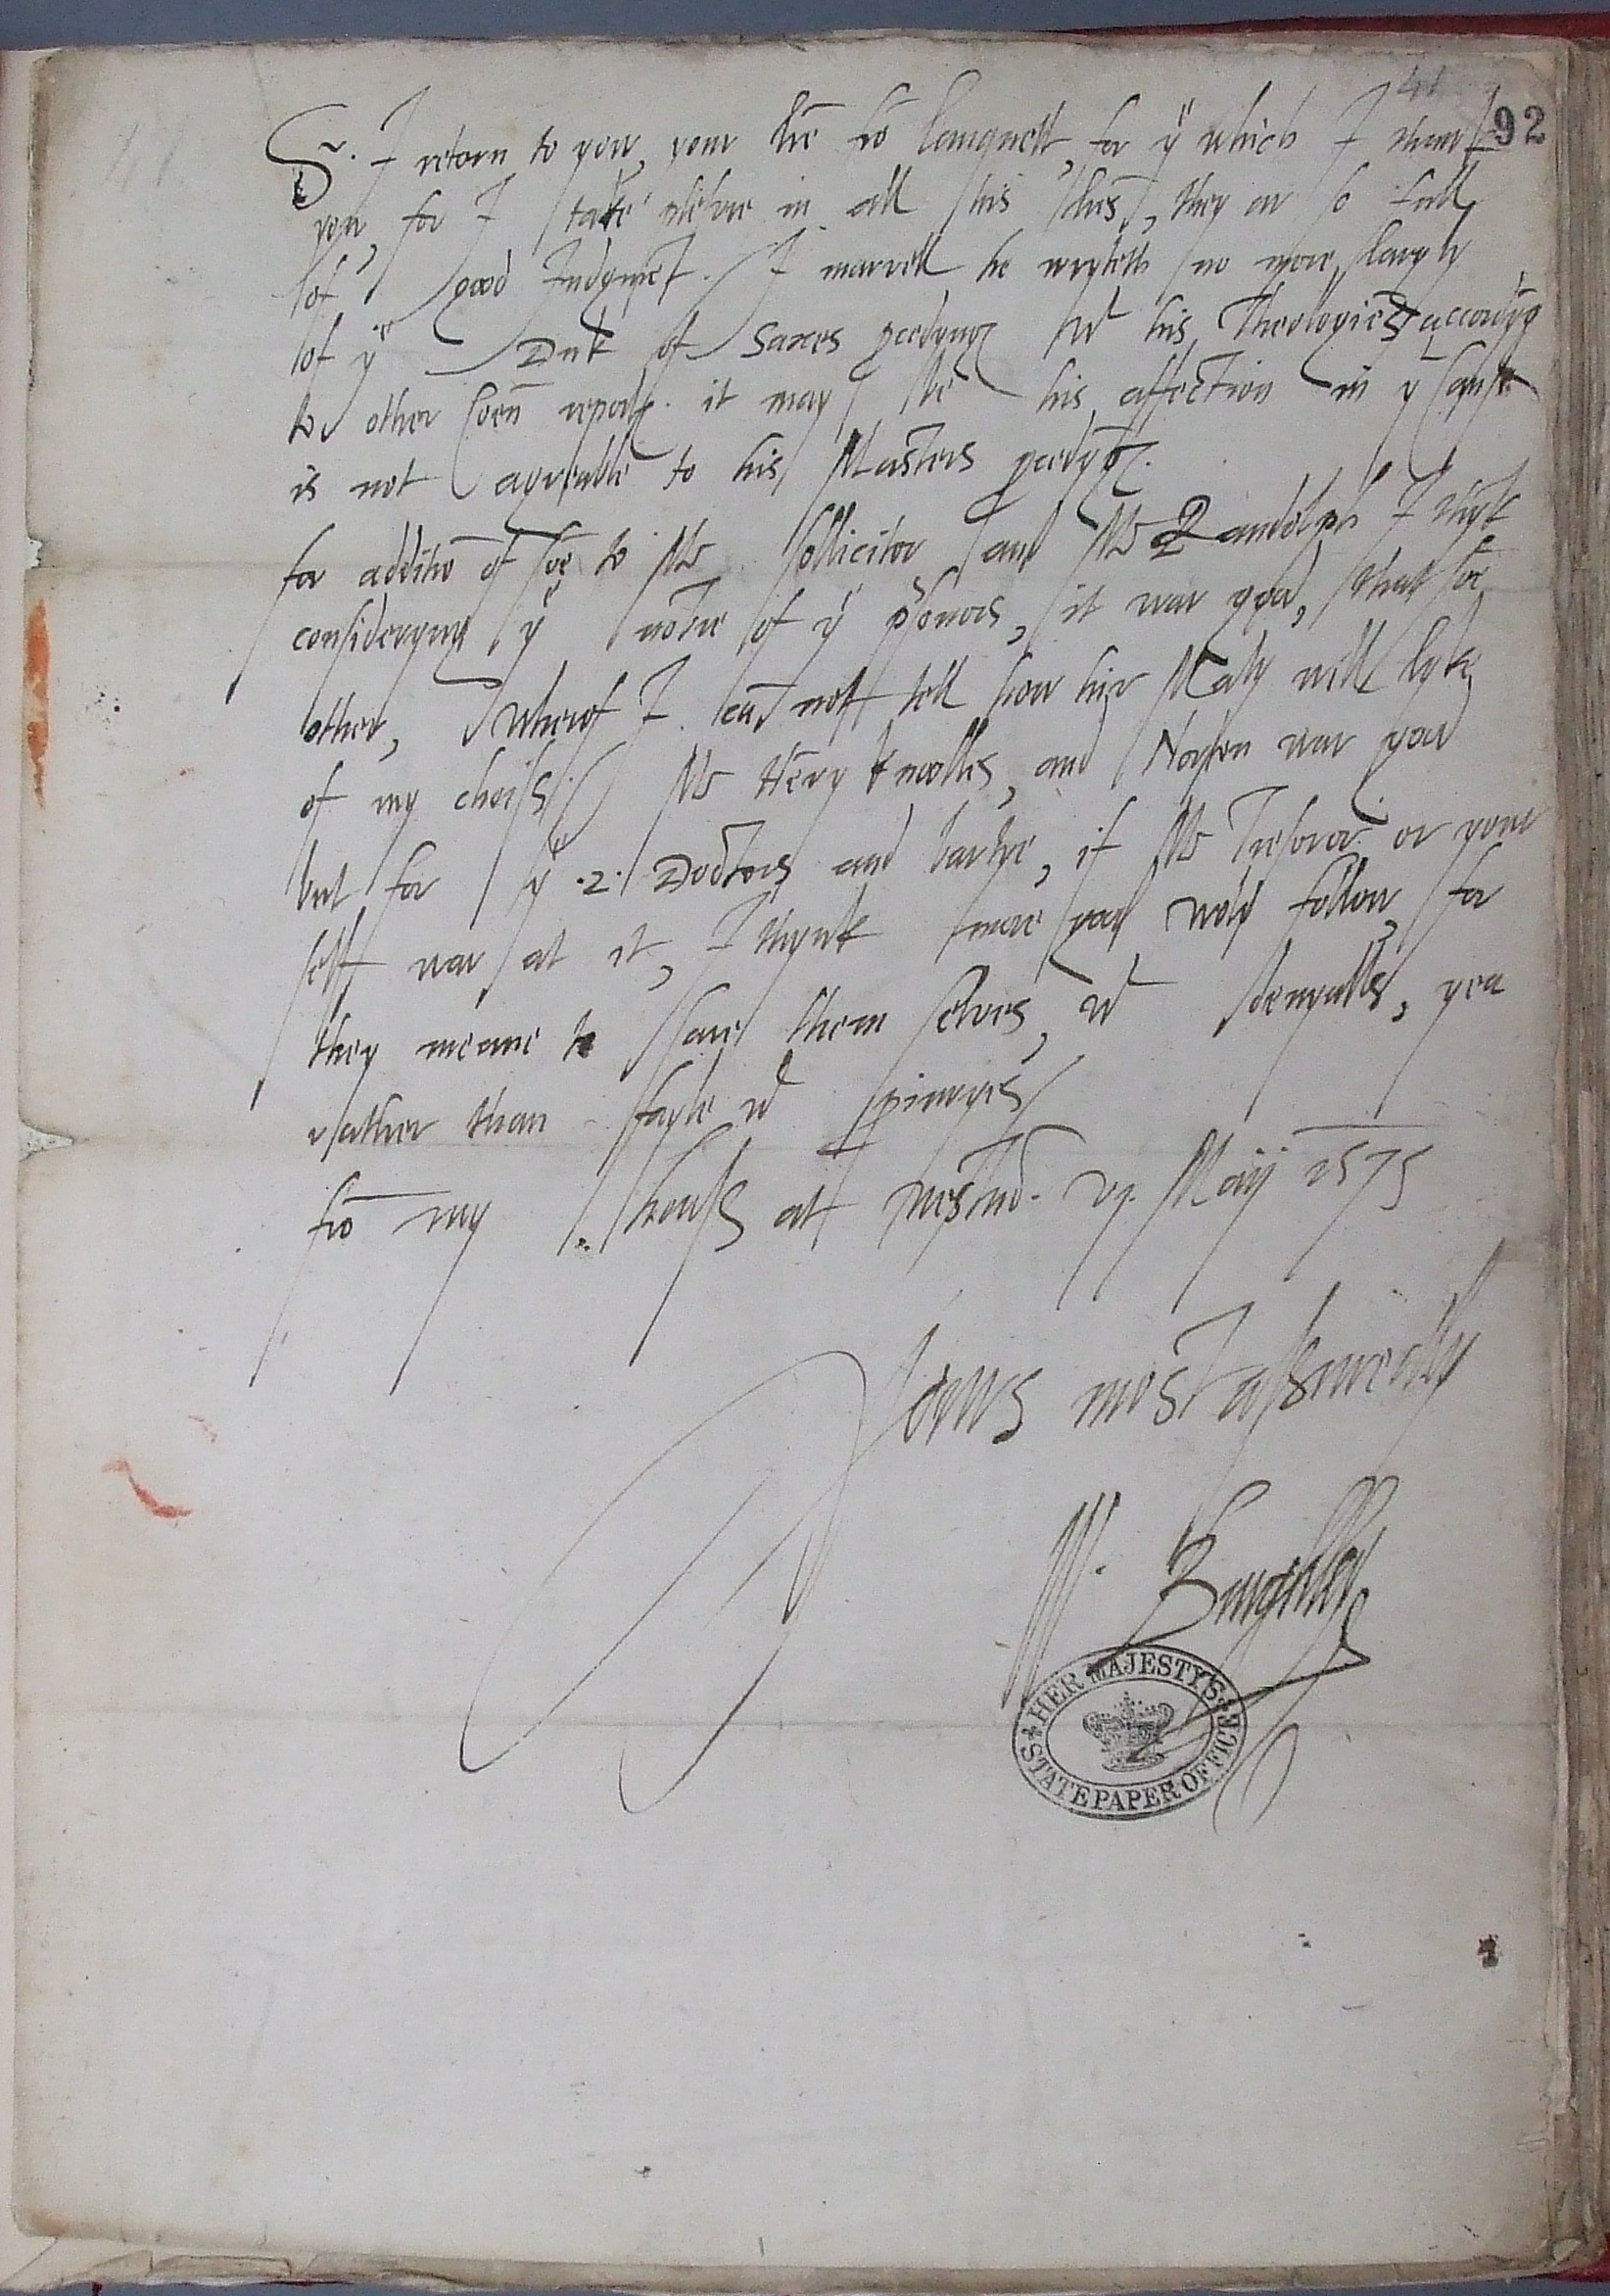 41
92
Sr. I retorn to you, your lre fro Languett, for ye which I thank
you, for I take plesure in all his lres, they ar so full
of good Judgmet. I marvell he wryteth no more largly
of ye Duk of Saxes procedyngs wt his Theologies accordyg
to other comen reports. it may be his affection in ye cause
is not agreable to his Masters procedygs.
for additio of some to Mr Sollicitor and Mr Randolph I thynk
consideryng ye nature of ye prsonors, it war good, that some
other, wherof I can not tell how hir Maty will lyke
of my choiss. Mr Hēry knolles, and Norton war good
but for ye .2. Doctors and barkre, if Mr Tresoror or your
self war at it, I thynk more good wold follow, for
they meane to save them selves, wt denyalls, yea
rather than fayle wt periuryes
fro my houss at westmr. vj. Maij 1575
Yours most assuredly
W. Burghley
HER MAJESTY'S STATE PAPER OFFICE